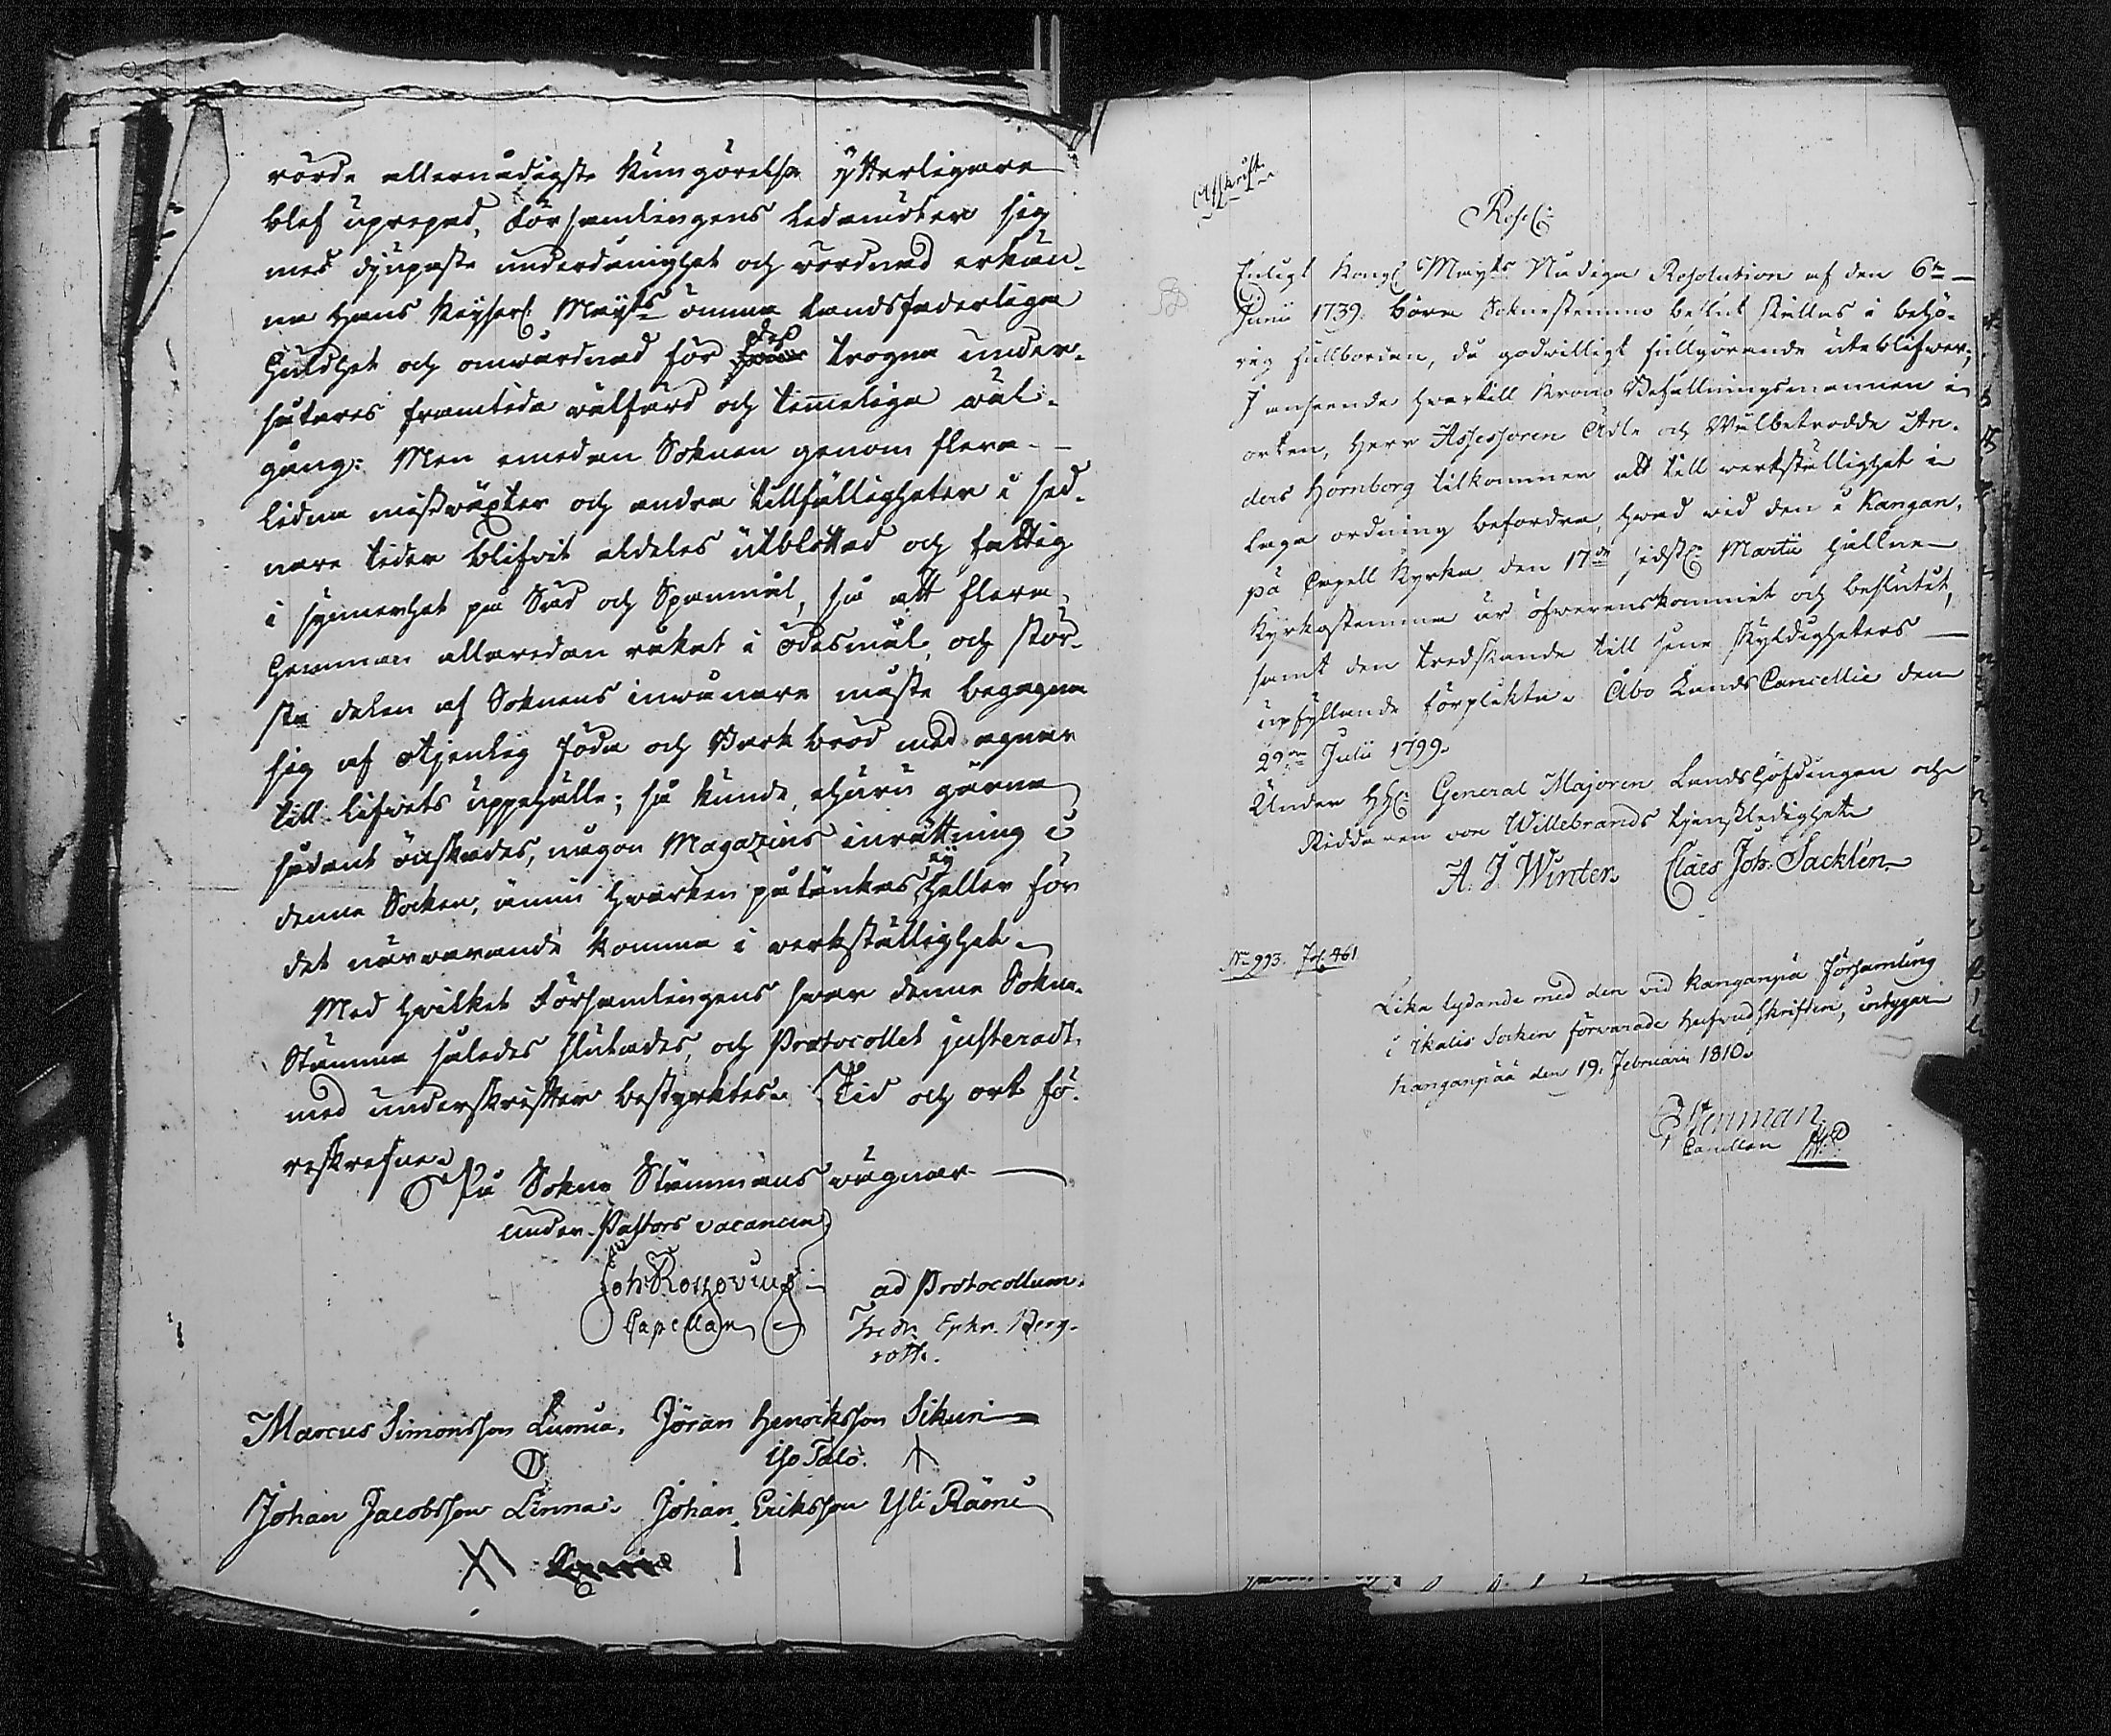 rörde allernådigste Kungörelse ytterligare
blef uprepad, Församlingens Ledamöter sig
med djupaste underdånighet och wördnad erkän-
na Hans Keyserl: Mayts ömma Landsfaderliga
Huldhet och omwårdnad för dess trogna under-
såtares framtida wälfärd och timeliga wäl-
gång: Men emedan Soknen genom flera
lidna missväxter och andra tillfälligheter i sed-
nare tider blifvit aldeles utblottad och fattig
i synnerhet på Säd och Spanmål, så att flera
Hemman allaredan råkat i ödesmål, och stör-
sta delen af Soknens inwånare måste begagna
sig af otjenlig föda och Bark bröd med agnar
till lifvets uppehälle; så kunde, ehuru gärna
sådant önskades, någon Magazins inrättning i
denna Socken, ännu hwarken påtänkas ej heller för
det närwarande komma i werkställighet.
Med hvilket Församlingens swar denna Sokne-
Stämma således slutades, och Protocollet justeradt,
med underskrifter bestyrktes. Tid och ort fö-
reskrefne.
På Sokne Stämmans wägnar
under Pastors vacancen
Joh: Roszovius
Capellan
ad Protocollum.
Fredr. Ephr. Berg-
roth.
Marcus Simonsson Luma. Jöran Henricksson Sikuri
Iso Talo.
Johan Jacobsson Linna. Johan Eriksson Yli Rämi
Afskrift.
Resol:
Enligt Kongl Mayts Nådiga Resolution af den 6te
Junii 1739. böra Soknestemmo beslut ställas i behö-
rig fullbordan, då godwilligt fullgörande uteblifwer;
I anseende hvartill Krono Befallningsmannen i
orten, Herr Assessoren Ädle och Wälbetrodde An-
ders Hornborg tilkommer att till werkställighet i
laga ordning befordra, hwad wid den i Kangan-
på Capell Kyrka den 17de sidstl: Martii hållne
Kyrkostemma är öfwerenskommit och beslutet,
samt den tredskande till sine skyldigheters
upfyllande förplikta. Åbo Lands Cancellie den
29de Julii 1799.
Under HH: General Majoren Landshöfdingen och
Riddaren von Willebrands tjenstledighet
A. J. Winter. Claes Joh. Sacklén
No 993. Fol. 461.
Lika lydande med den vid Kanganpä Församling
i Ikalis Socken förvarade hufvudskriften, intygar
Kanganpää den 19. Februarii 1810.
Stenman
Capellan